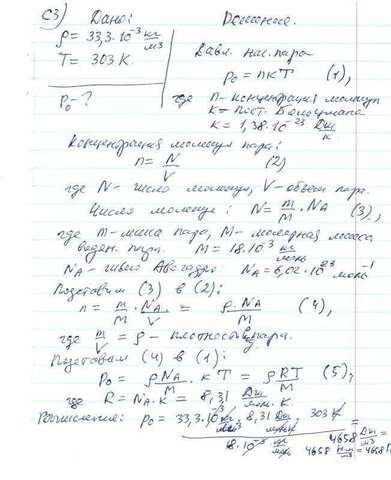 С3) Дано: Решение.
ρ = 33,3·10⁻³ кг/м3
T = 303 К.
Давл. нас. пара
P₀ = nkT (1),
P₀ - ?
где n - концентрация молекул
k = пост. Больцмана
k = 1,38·10⁻²³ Дж/К
Концентрация молекул пара:
n = N/V (2)
где N - число молекул, V - объем пара.
Число молекул: N = m/M · N_A (3),
где m - масса пара, M - молярная масса
водян. пара. M = 18·10⁻³ кг/моль
N_A - число Авогадро N_A = 6,02·10²³ моль⁻¹
Подставим (3) в (2):
n = m/M · N_A/V = ρN_A/M (4),
где m/V = ρ - плотность пара.
Подставим (4) в (1):
P₀ = ρN_A/M · kT = ρRT/M (5),
где R = N_A·k = 8,31 Дж/мол. К
Вычисления: P₀ = 33,3·10⁻³ кг/м3 · 8,31 Дж/мольК · 303 К / 18·10⁻³ кг/моль =
4658 Дж/м3 =
4658 Н·м/м3 = 4658